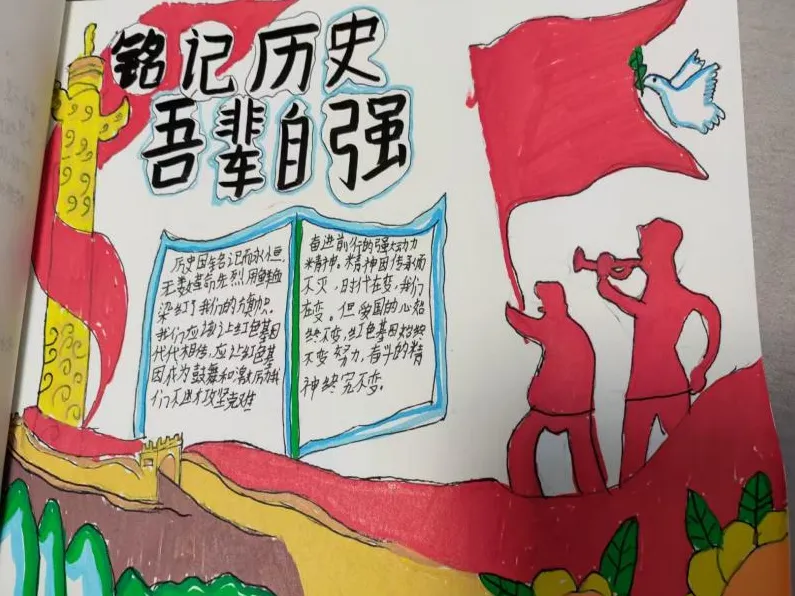 铭记历史
吾辈自强
历史因铭记而永恒,
无数革命先烈用鲜血
染红了我们的旗帜。
我们应该让红色基因
代代相传,应让红色基
因成为鼓舞和激励我
们不断攻坚克难
奋进前行的强大动力
精神。精神因传承而
不灭,时代在变,我们
在变。但爱国的心始
终不变,红色基因始终
不变努力,奋斗的精
神终究不变。